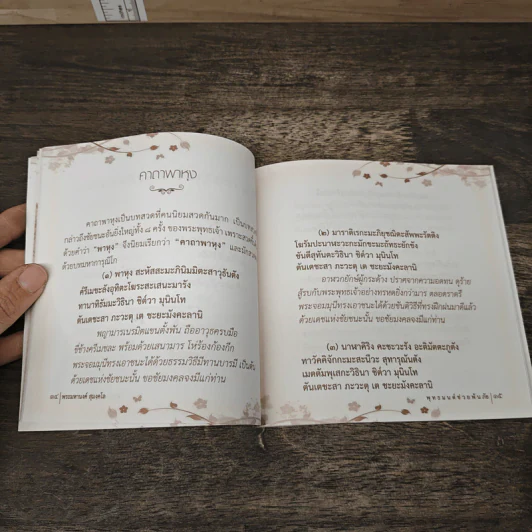 คาถาพาหุง
คาถาพาหุงเป็นบทสวดที่คนนิยมสวดกันมาก เป็นบทที่
กล่าวถึงชัยชนะอันยิ่งใหญ่ทั้ง ๘ ครั้ง ของพระพุทธเจ้า เพราะสวดขึ้นต้น
ด้วยคำว่า "พาหุง" จึงนิยมเรียกว่า "คาถาพาหุง" และมัก
ด้วยบทมหาการุณิโก
(๑) พาหุง สะหัสสะมะภินิมมิตะสาวุธันตัง
ครีเมขะลังอุทิตะโฆระสะเสนะมารัง
ทานาทิธัมมะวิธินา ชิต๎วา มุนินโท
ตันเตชะสา ภะวะตุ เต ชะยะมังคะลานิ
พญามารเนรมิตแขนตั้งพัน ถืออาวุธครบมือ
ขี่ช้างครีเมขละ พร้อมด้วยเสนามาร โห่ร้องก้องกึก
พระจอมมุนีทรงเอาชนะได้ด้วยธรรมวิธีมีทานบารมี เป็นต้น
ด้วยเดชแห่งชัยชนะนั้น ขอชัยมงคลจงมีแก่ท่าน
(๒) มาราติเรกะมะภิยุชฌิตะสัพพะรัตติง
โฆรัมปะนาฬะวะกะมักขะมะถัทธะยักขัง
ขันตีสุทันตะวิธินา ชิต๎วา มุนินโท
ตันเตชะสา ภะวะตุ เต ชะยะมังคะลานิ
อาฬวกยักษ์ผู้กระด้าง ปราศจากความอดทน ดุร้าย
สู้รบกับพระพุทธเจ้าอย่างทรหดยิ่งกว่ามาร ตลอดราตรี
พระจอมมุนีทรงเอาชนะได้ด้วยขันติวิธีที่ทรงฝึกฝนมาดีแล้ว
ด้วยเดชแห่งชัยชนะนั้น ขอชัยมงคลจงมีแก่ท่าน
(๓) นาฬาคิริง คะชะวะรัง อะติมัตตะภูตัง
ทาวัคคิจักกะมะสะนีวะ สุทารุณันตัง
เมตตัมพุเสกะวิธินา ชิต๎วา มุนินโท
ตันเตชะสา ภะวะตุ เต ชะยะมังคะลานิ
พุทธมนต์ช่วยพ้นภัย